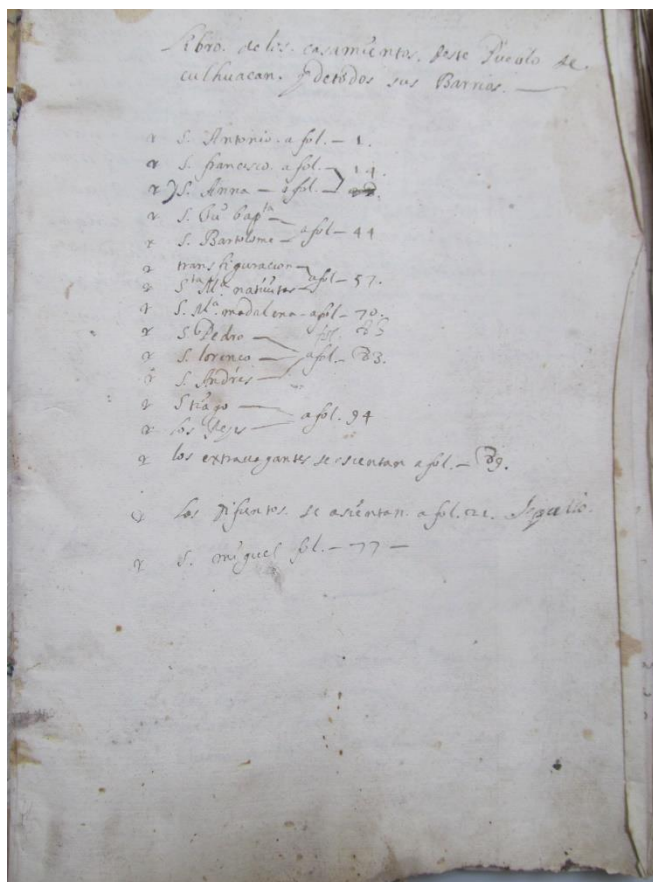 Libro. de los. casamientos. deste Pueblo de
culhuacan. y de todos sus Barrios.
S. Antonio. a fol. — 1.
S. francisco. a fol. — 14
S. Anna — a fol. —
S. Juº bapta
S. Bartolome — a fol — 44
transfiguracion —
Sta Mª natiuitas — a fol — 57.
S. Mª. madalena — a fol — 70.
S. Pedro — fol. 83
S. lorenço — a fol. — 83.
S. Andres —
Stiago —
los Reyes — a fol. 94
los extrauagantes se asientan a fol. — 89.
los difuntos. se asientan. a fol.
S. miguel fol. — 77 —